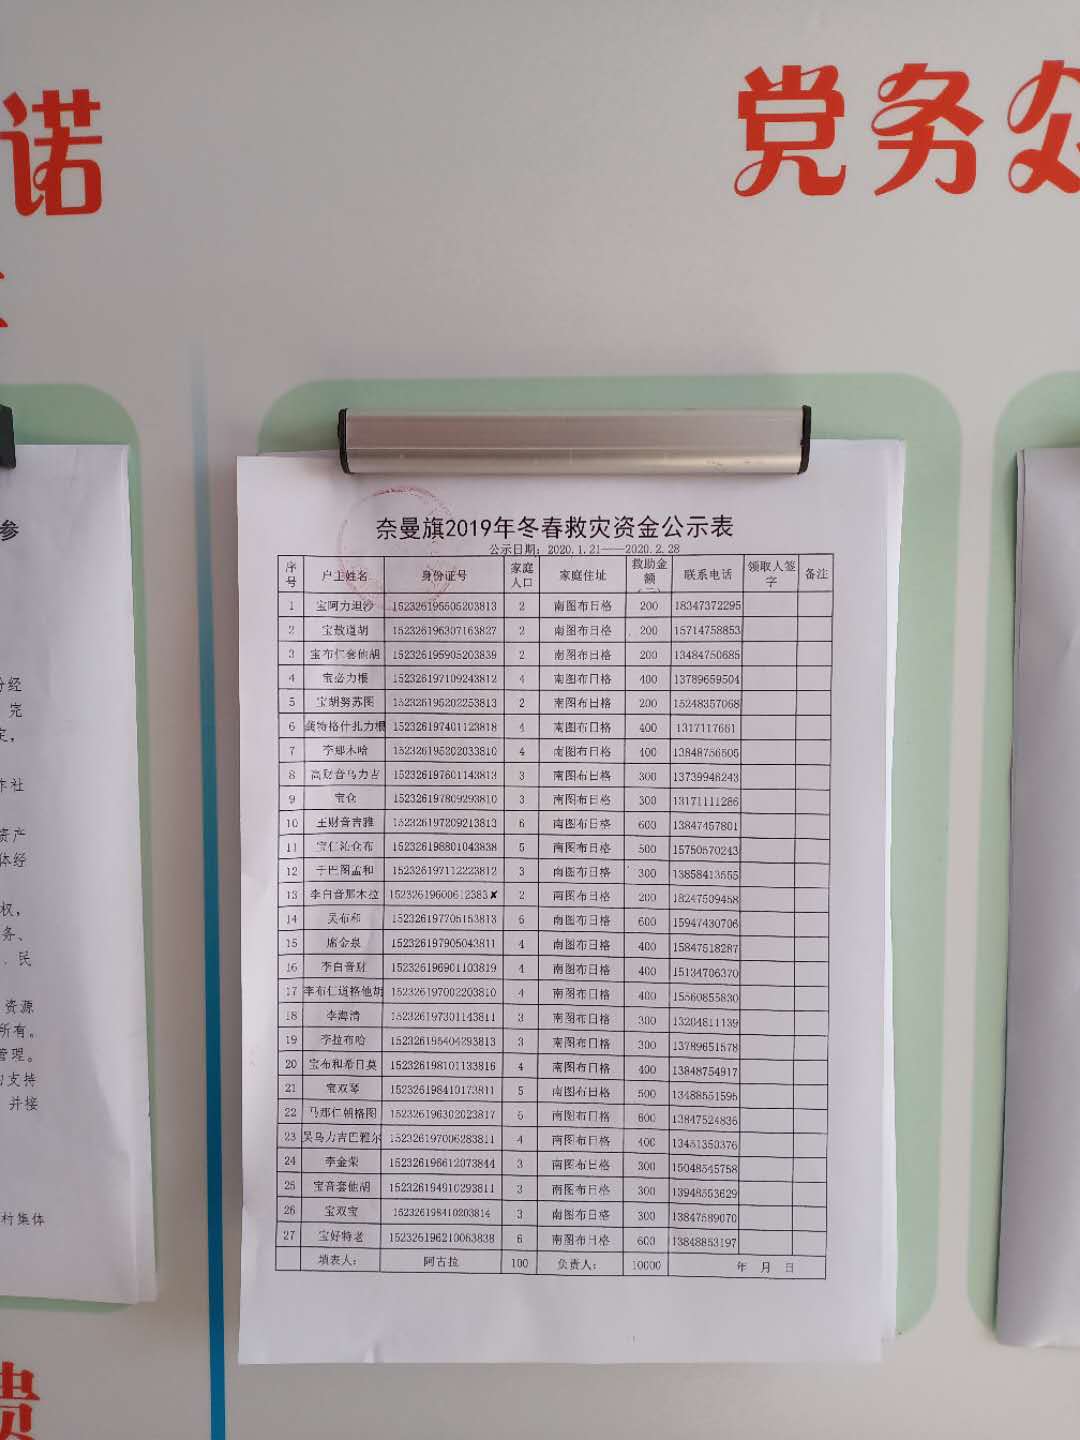 诺
党务公
奈曼旗2019年冬春救灾资金公示表
公示日期：2020.1.21——2020.2.28
序号 户主姓名 身份证号 家庭人口 家庭住址 救助金额 联系电话 领取人签字 备注
1 宝阿力坦沙 152326195505203813 2 南图布日格 200 18347372295
2 宝敖道胡 152326196307163827 2 南图布日格 200 15714758853
3 宝布仁套他胡 152326195905203839 2 南图布日格 200 13484750685
4 宝必力根 152326197109243812 4 南图布日格 400 13789659504
5 宝胡努苏图 152326195202253813 2 南图布日格 200 15248357068
6 特格什扎力根 152326197401123818 4 南图布日格 400 1317117661
7 李那木哈 152326195202033810 4 南图布日格 400 13848756505
8 高财音乌力吉 152326197601143813 3 南图布日格 300 13739946243
9 宝仓 152326197809293810 3 南图布日格 300 13171111286
10 王财音吉雅 152326197209213813 6 南图布日格 600 13847457801
11 宝仁沁仓布 152326198801043838 5 南图布日格 500 15750570243
12 于巴图孟和 152326197112223812 3 南图布日格 300 13858413555
13 李白音那木拉 15232619600612383✗ 2 南图布日格 200 18247509458
14 吴布和 152326197705153813 6 南图布日格 600 15947430706
15 席金泉 152326197905043811 4 南图布日格 400 15847518287
16 李白音财 152326196901103819 4 南图布日格 400 15134706370
17 李布仁道格他胡 152326197002203810 4 南图布日格 400 15560855830
18 李海清 152326197301143811 3 南图布日格 300 13204811139
19 李拉布哈 152326195404293813 3 南图布日格 300 13789651578
20 宝布和希日莫 152326198101133816 4 南图布日格 400 13848754917
21 宝双琴 152326198410173811 5 南图布日格 500 13488551595
22 马那仁朝格图 152326196302023817 6 南图布日格 600 13847524836
23 吴乌力吉巴雅尔 152326197006283811 4 南图布日格 400 13451350376
24 李金荣 152326196612073844 3 南图布日格 300 15048545758
25 宝音套他胡 152326194910293811 3 南图布日格 300 13948553629
26 宝双宝 152326198410203814 3 南图布日格 300 13847589070
27 宝好特老 152326196210063838 6 南图布日格 600 13848853197
填表人： 阿古拉 100 负责人： 10000 年 月 日
参
分经
完
定，
作社
资产
体经
权，
务、
、民
资源
所有。
管理。
的支持
并接
村集体